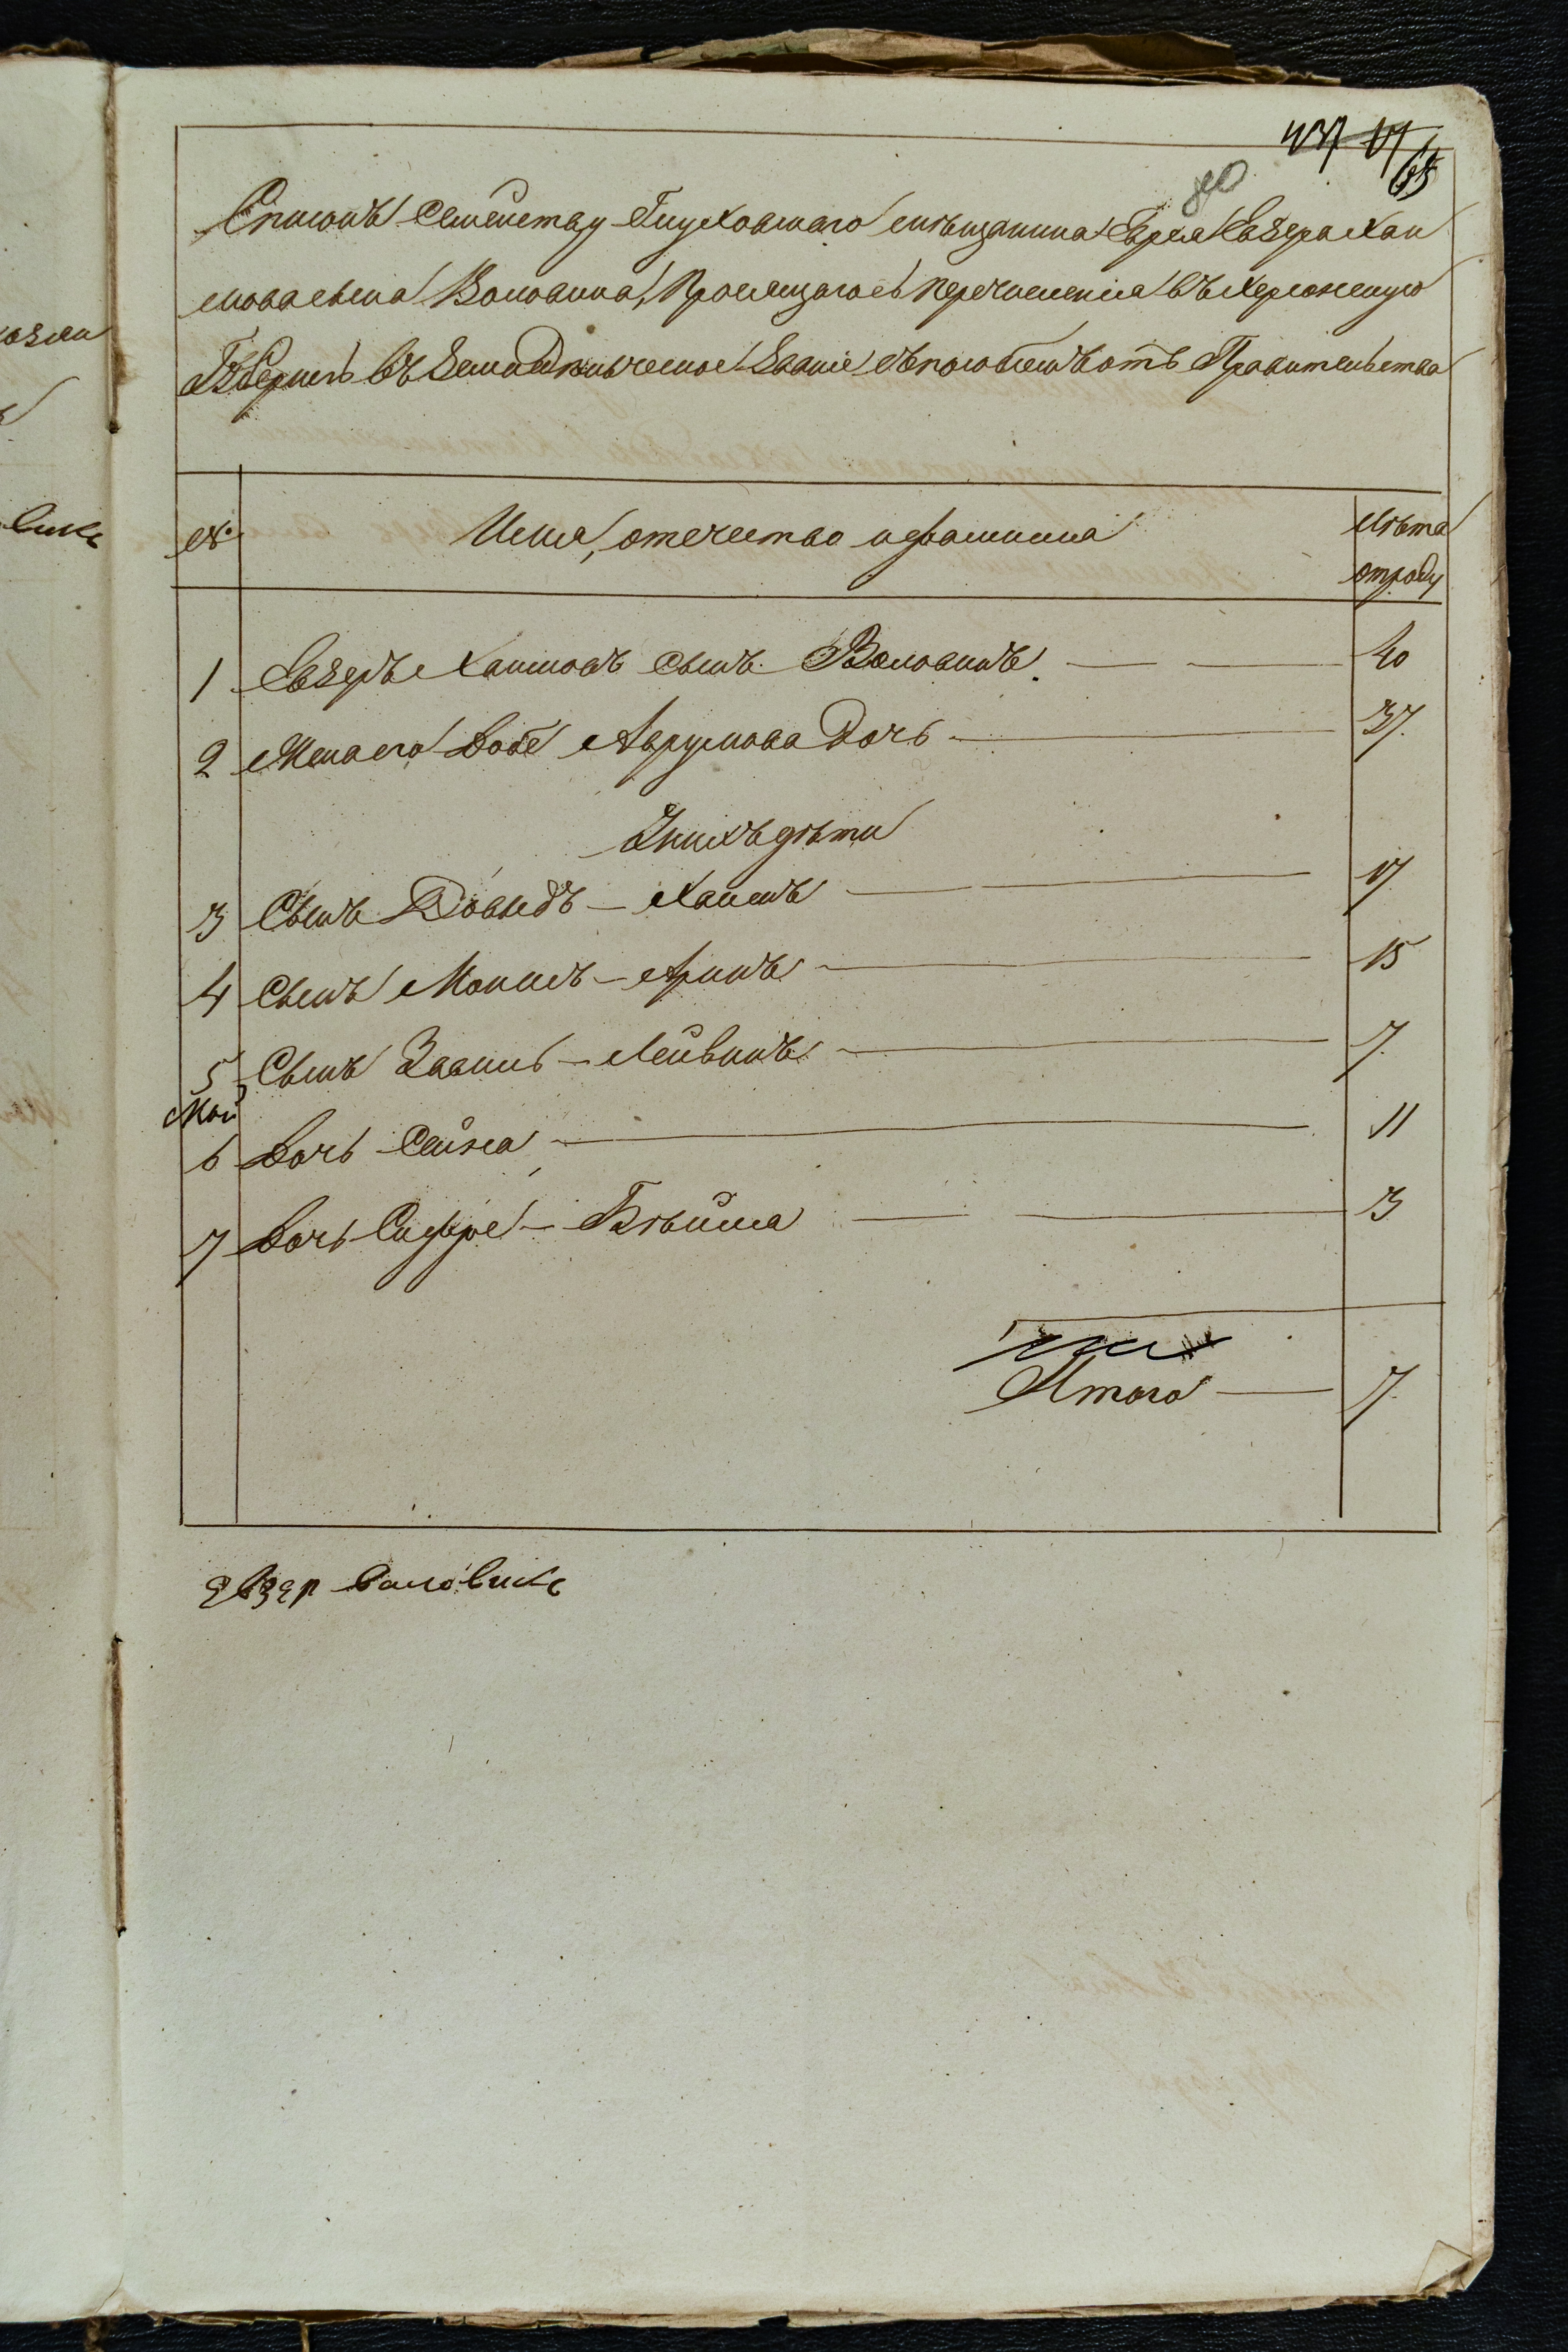 65
Списокъ Семейству Глуховскаго мѣщанина Еврея Евзера Хаи
мова сына Воловика, Просящагось перечисленія въ Херсонскую
Губернію въ Земледѣльческое Званіе съ пособіемъ отъ Правительства
№
Имя, отечество и фамилия
Лѣта
отроду
1 Евзеръ Хаимовъ сынъ Воловикъ. 40
2 Жена его Добе Аврумова Дочь 37.
У нихъ дѣти
3 Сынъ Довыдъ - Хаимъ 17
4 Сынъ Монись - Арикъ 15
5 Сынъ Завиль - Лейвикъ 7.
6 Дочь Сейна 11
7 Дочь Сифре - Бгейла 3
Итого 7.
Евзер Воловикъ